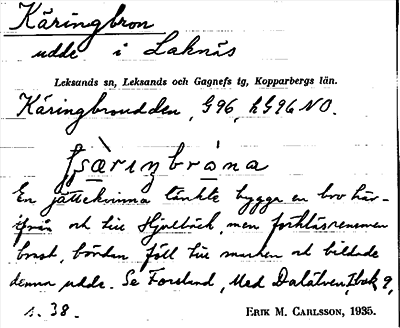 Käringbron
udde i Laknäs
Leksands sn, Leksands och Gagnefs tg, Kopparbergs län.
Käringbroudden, G96, LG96 NO.
En jättekvinna tänkte bygga en bro här-
ifrån och till Hjulbäck, men förklädsremmen
brast, bördan föll till marken och bildade
denna udde. Se Forslund, Med Dalälven, I bok 9,
s. 38.
ERIK M. CARLSSON, 1935.